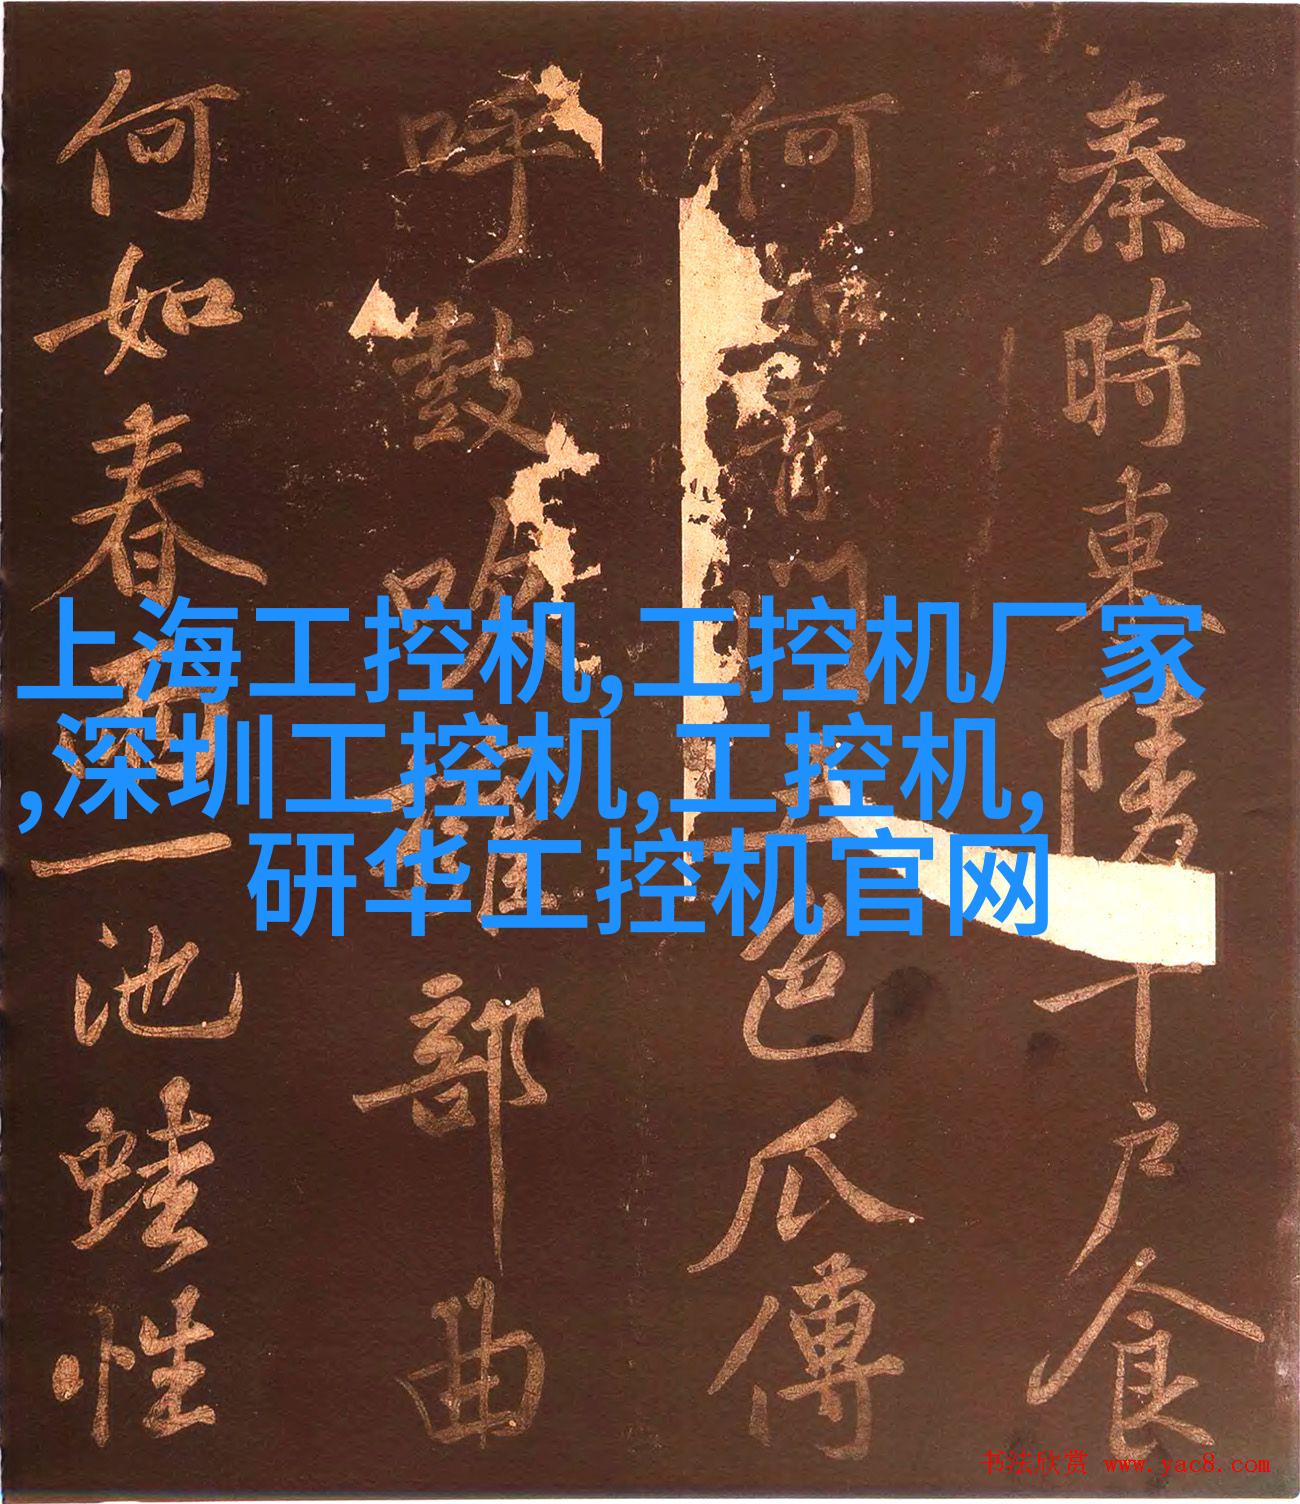 秦時東陵千戶食
何如青門五色瓜傳
呼鼓吹擁部曲
何如春雨一池蛙性
上海工控机,工控机厂家
,深圳工控机,工控机,
研华工控机官网
书法欣赏 www.yac8.com